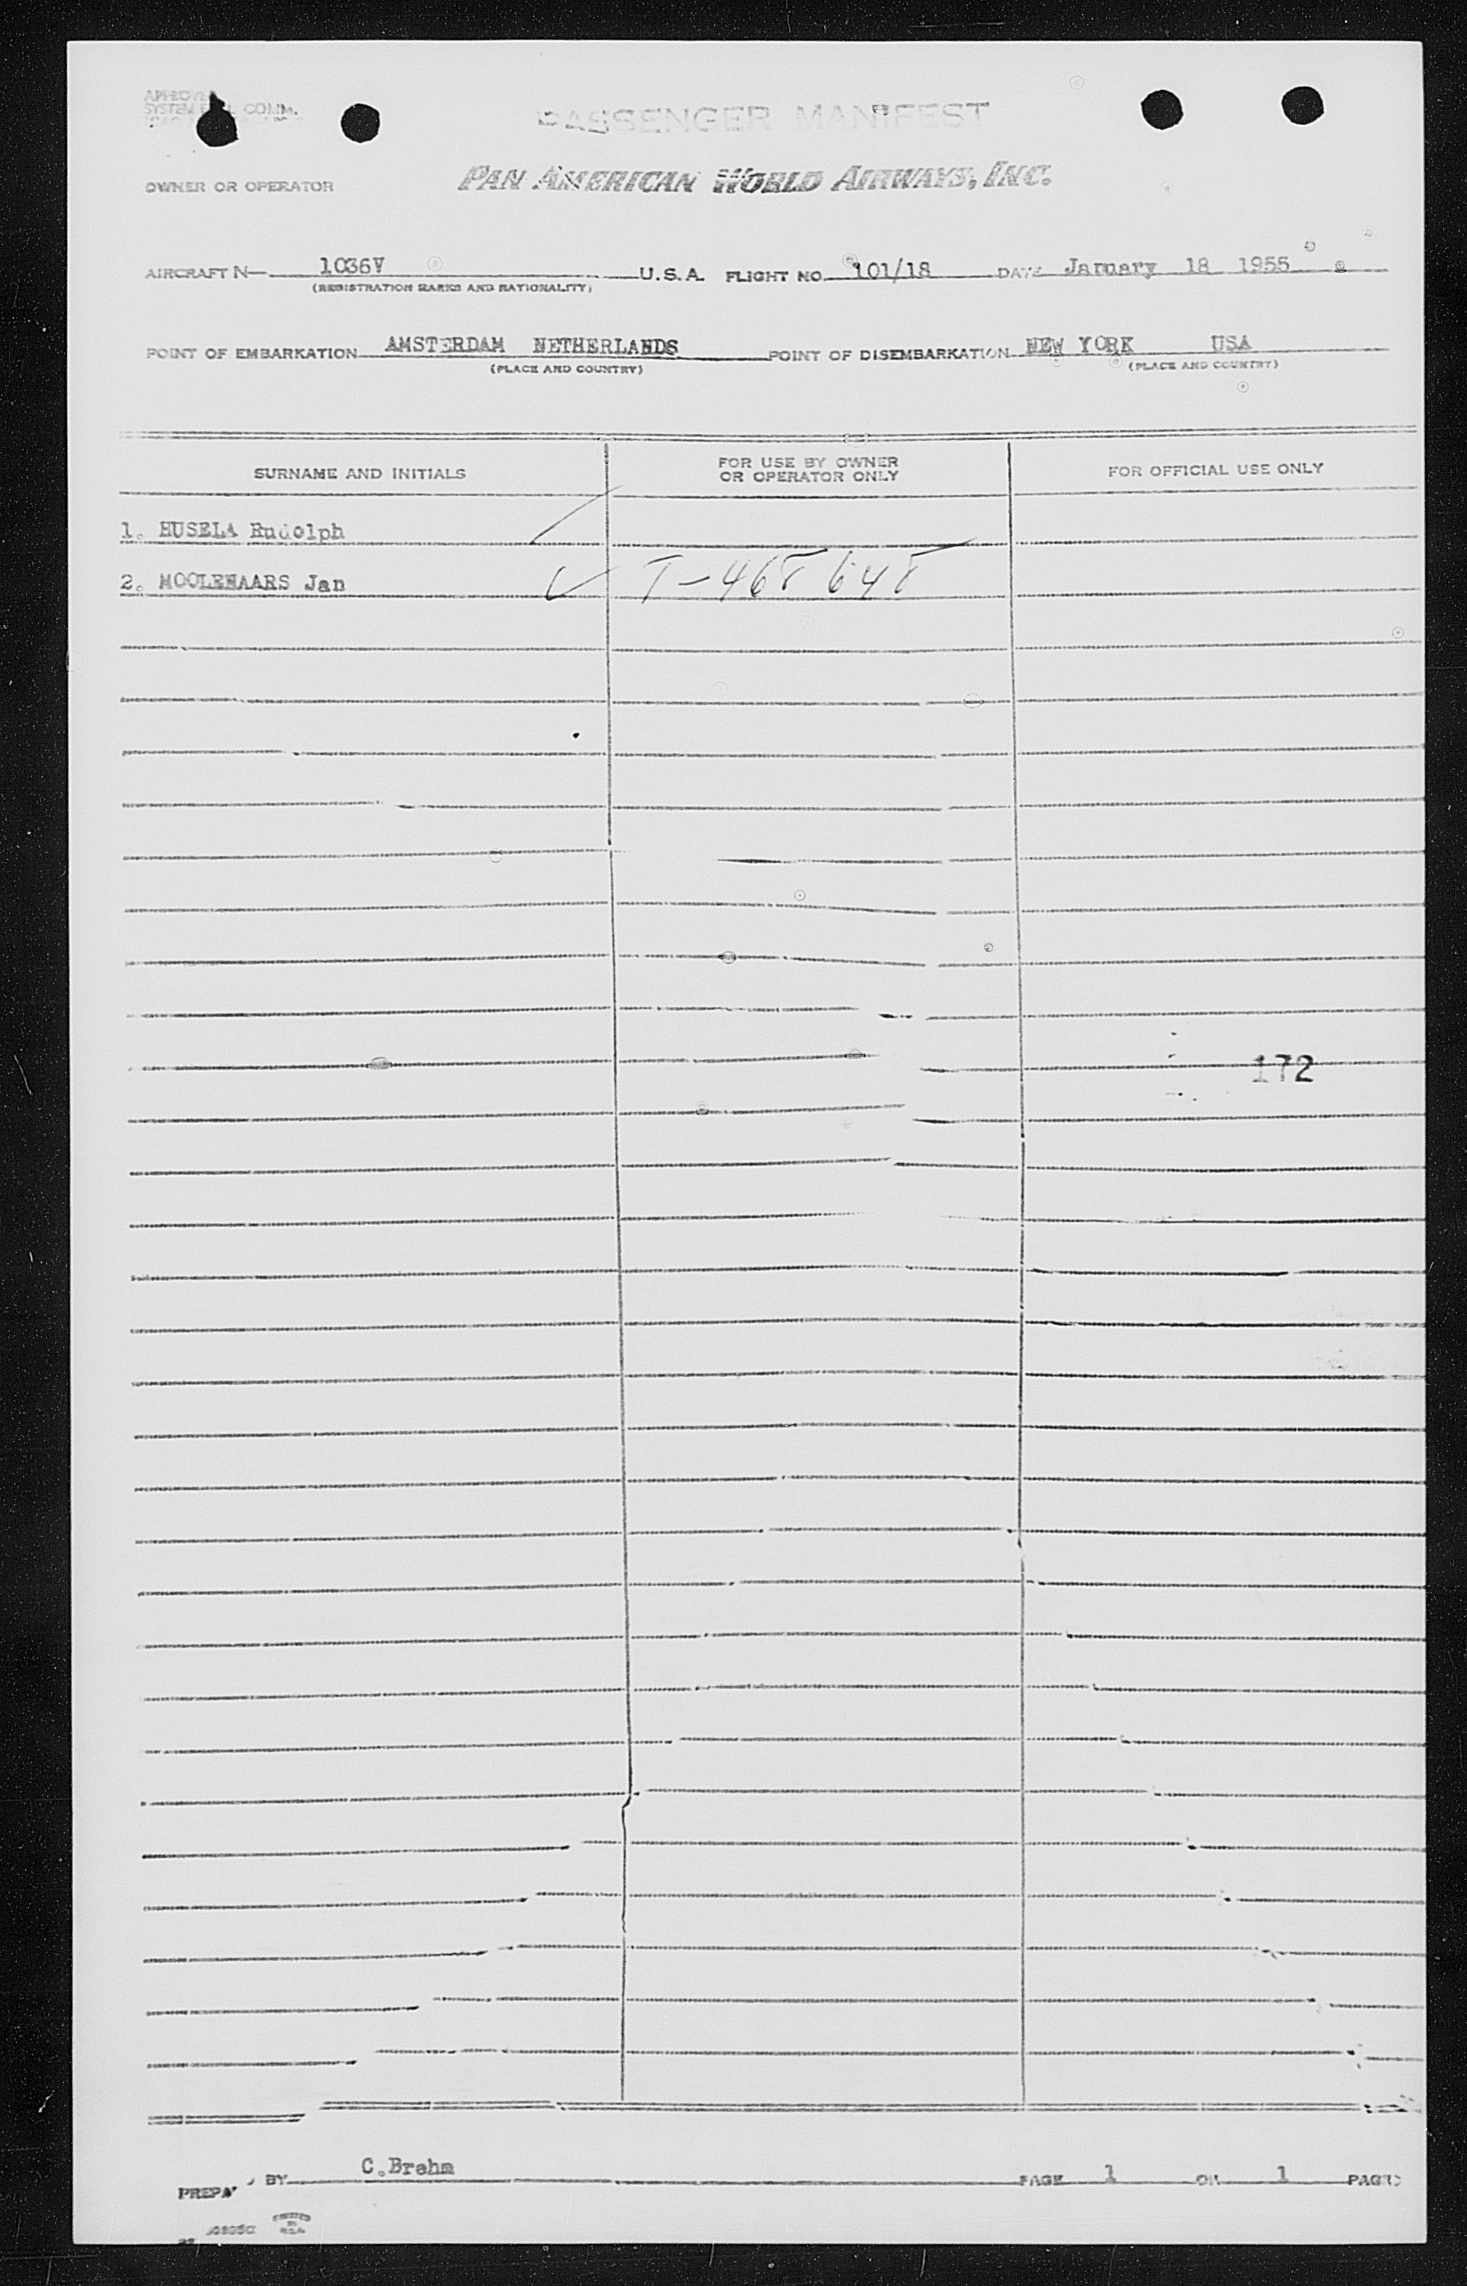 PASSENGER MANIFEST
OWNER OR OPERATOR PAN AMERICAN WORLD AIRWAYS, INC.
AIRCRAFT N— 1036V U.S.A. FLIGHT NO. 101/18 DATE January 18 1955
(REGISTRATION MARKS AND NATIONALITY)
POINT OF EMBARKATION AMSTERDAM NETHERLANDS POINT OF DISEMBARKATION NEW YORK USA
(PLACE AND COUNTRY) (PLACE AND COUNTRY)
SURNAME AND INITIALS FOR USE BY OWNER OR OPERATOR ONLY FOR OFFICIAL USE ONLY
1. HUSELA Rudolph
2. MOOLENAARS Jan T-468648
172
BY C.Brehm PAGE 1 OF 1 PAGES